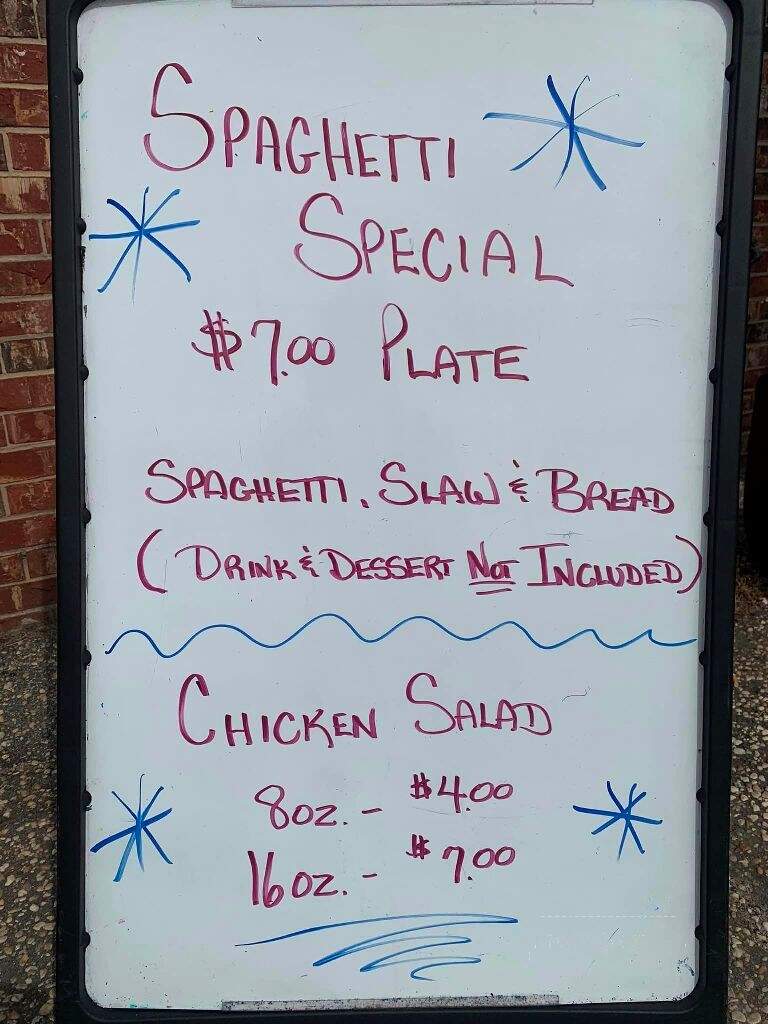 SPAGHETTI
SPECIAL
$7.00 PLATE
SPAGHETTI, SLAW & BREAD
(DRINK & DESSERT NOT INCLUDED)
CHICKEN SALAD
8oz. - $4.00
16oz. - $7.00